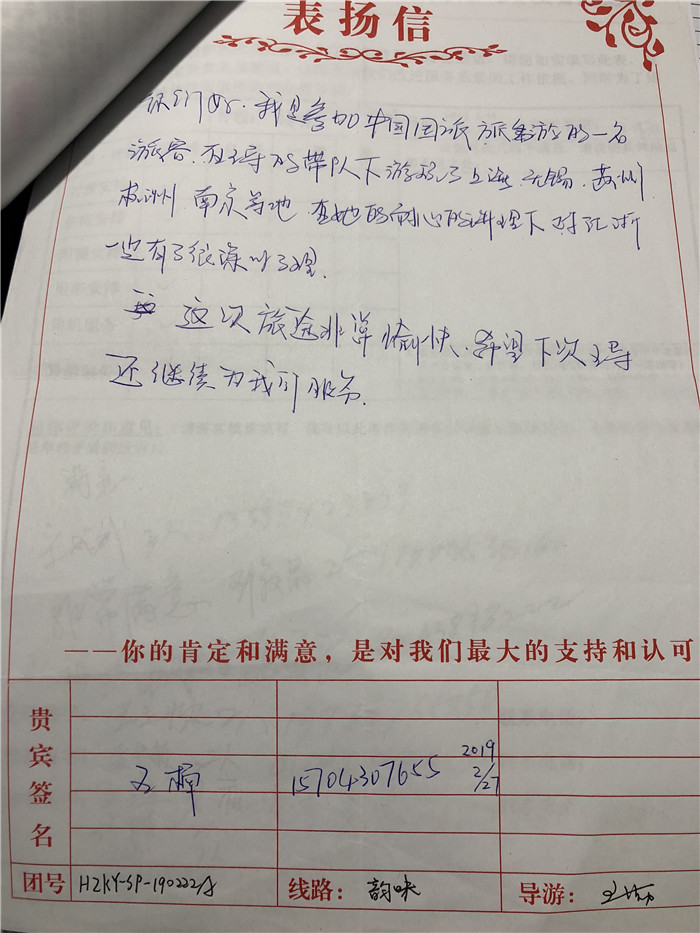 表扬信
你们好．我是参加中国国旅旅游的一名
游客．在王导的带队下游玩了上海．无锡．苏州
杭州．南京等地．在她的耐心的讲理下对江浙
一带有了很深的了解．
这次旅途非常愉快．希望下次王导
还继续为我们服务．
——你的肯定和满意，是对我们最大的支持和认可
贵宾签名
15704307655 2019 2/27
团号 HZKY-SP-190222A 线路： 韵味 导游： 王